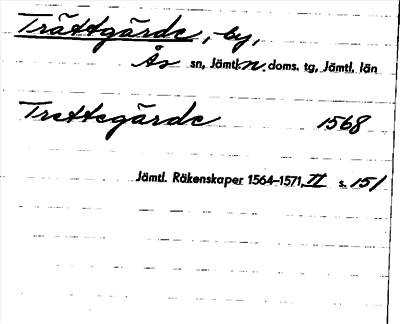 Trättgärde, by,
Ås sn, Jämtl. n. doms. tg, Jämtl. län
Trettegärde 1568
Jämtl. Räkenskaper 1564-1571, II s. 151